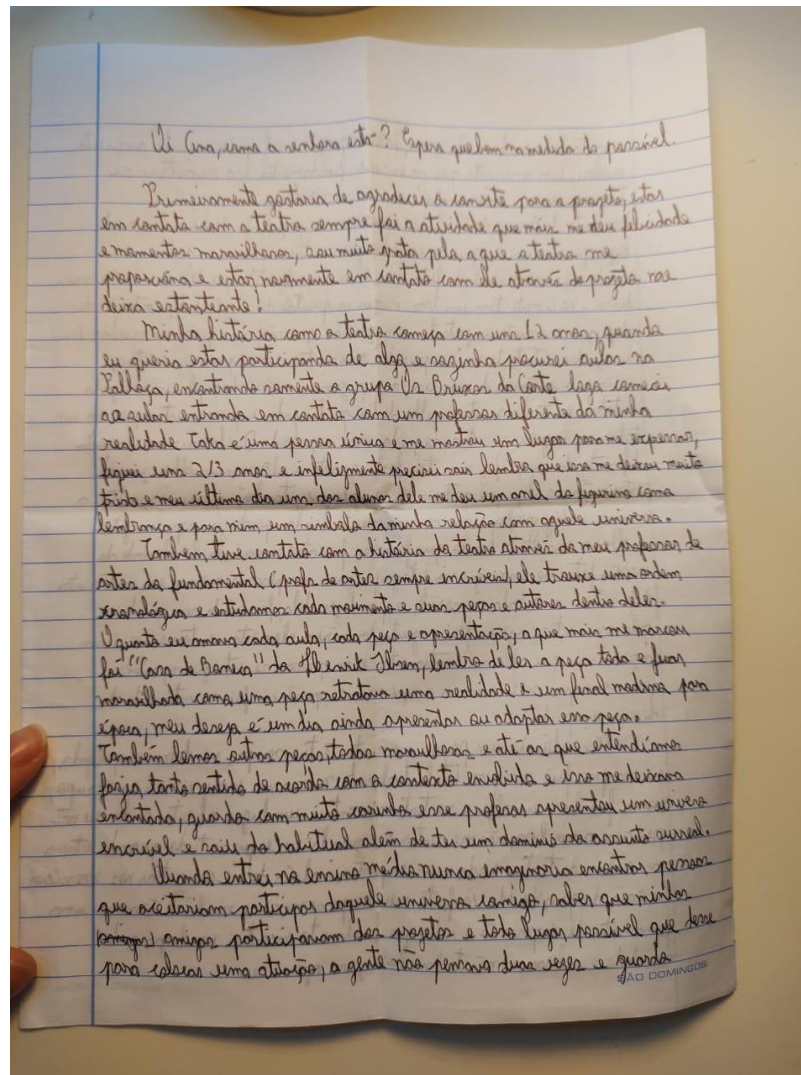 Oi Ana, como a senhora está? Espero que bem na medida do possível.
Primeiramente gostaria de agradecer o convite para o projeto, estar
em contato com o teatro sempre foi a atividade que mais me deu felicidade
e momentos maravilhosos, sou muito grata pela o que o teatro me
proporciona e estar novamente em contato com ele através do projeto me
deixa estonteante!
Minha história com o teatro começa com uns 12 anos, quando
eu queria estar participando de algo e sozinha procurei aulas na
Palhoça, encontrando somente o grupo Os Bruxos da Corte logo comecei
as aulas entrando em contato com um professor diferente da minha
realidade Taka é uma pessoa única e me mostrou um lugar para me expressar,
fiquei uns 2/3 anos e infelizmente precisei sair lembro que isso me deixou muito
triste e meu último dia um dos alunos dele me deu um anel do figurino como
lembrança e para mim um símbolo da minha relação com aquele universo.
Também tive contato com a história do teatro através do meu professor de
artes do fundamental (profs de artes sempre incríveis), ele trouxe uma ordem
cronológica e estudamos cada movimento e suas peças e autores dentro deles.
O quanto eu amava cada aula, cada peça e apresentação, a que mais me marcou
foi "Casa de Boneca" do Henrik Ibsen, lembro de ler a peça toda e ficar
maravilhada como uma peça retratava uma realidade e um final moderno para
época, meu desejo é um dia ainda apresentar ou adaptar essa peça.
Também lemos outras peças, todas maravilhosas e até as que entendíamos
fazia tanto sentido de acordo com o contexto envolvido e isso me deixava
encantada, guardo com muito carinho esse professor apresentou um universo
incrível e saiu do habitual além de ter um domínio do assunto surreal.
Quando entrei no ensino médio nunca imaginaria encontrar pessoas
que aceitariam participar daquele universo comigo, saber que minhas
amigos participariam dos projetos e todo lugar possível que desse
para colocar uma atuação, a gente não pensava duas vezes e guardo
SÃO DOMINGOS